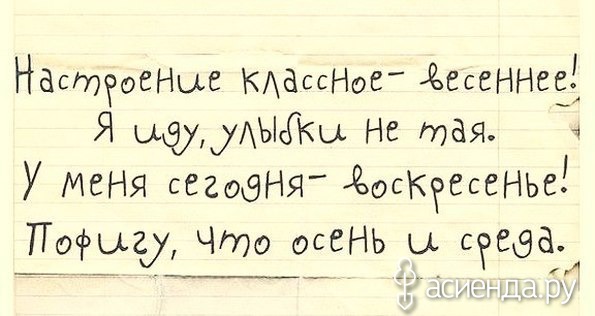 Настроение классное- весеннее!
Я иду, улыбки не тая.
У меня сегодня- воскресенье!
Пофигу, что осень и среда.
асиенда.ру